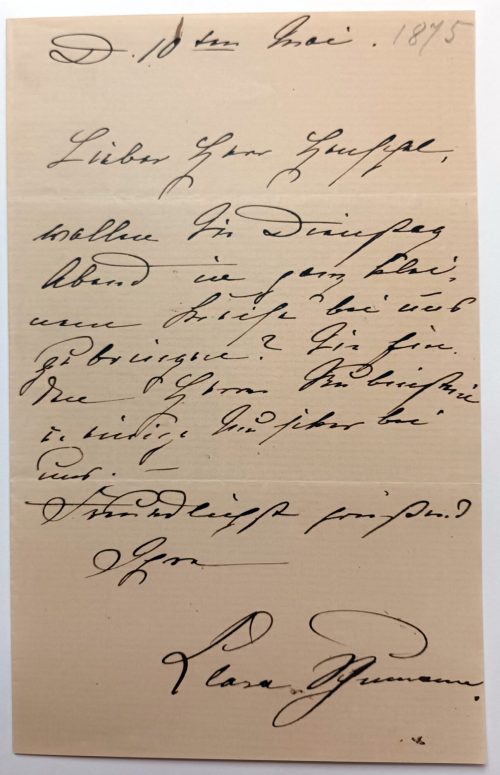 D. 10ten Mai. 1875
Lieber Herr Henschel,
wollen Sie Dienstag
Abend in ganz klei-
nem Kreise bei uns
zubringen? Sie fin-
den Herrn Rubinstein
u. einige Musiker bei
uns. —
Freundlichst grüßend
Ihre
Clara Schumann.